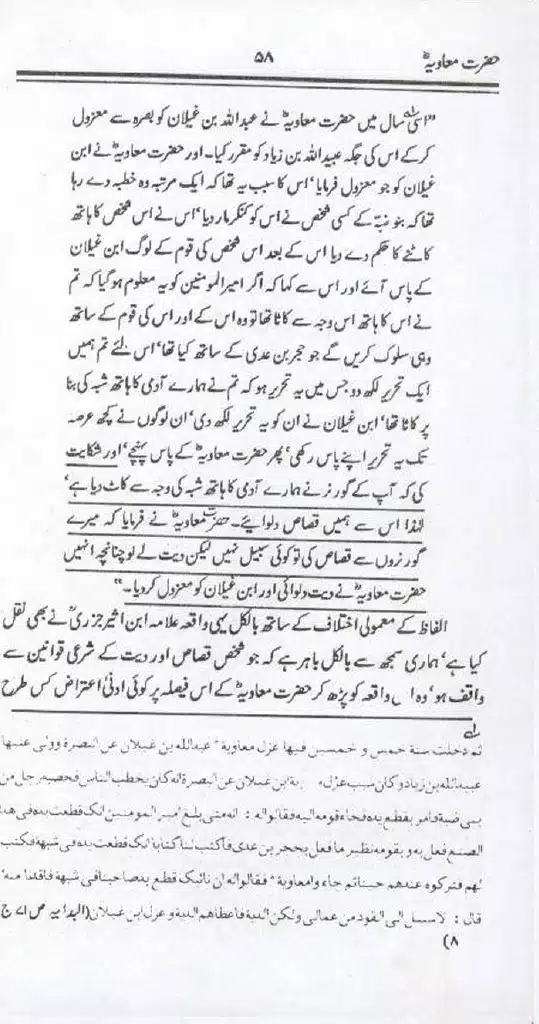 حضرت معاویہؓ ۵۸
"اسی سال میں حضرت معاویہؓ نے عبداللہ بن غیلان کو بصرہ سے معزول
کر کے اس کی جگہ عبیداللہ بن زیاد کو مقرر کیا۔ اور حضرت معاویہؓ نے ابن
غیلان کو جو معزول فرمایا' اس کا سبب یہ تھا کہ ایک مرتبہ وہ خطبہ دے رہا
تھا کہ بنو ضبہ کے کسی شخص نے اس کو کنکر مار دیا' اس نے اس شخص کا ہاتھ
کاٹنے کا حکم دے دیا اس کے بعد اس شخص کی قوم کے لوگ ابن غیلان
کے پاس آئے اور اس سے کہا کہ اگر امیرالمومنین کو یہ معلوم ہو گیا کہ تم
نے اس کا ہاتھ اس وجہ سے کاٹا تھا تو وہ اس کے اور اس کی قوم کے ساتھ
وہی سلوک کریں گے جو حجر بن عدی کے ساتھ کیا تھا' اس لئے تم ہمیں
ایک تحریر لکھ دو جس میں یہ تحریر ہو کہ تم نے ہمارے آدمی کا ہاتھ شبہ کی بنا
پر کاٹا تھا' ابن غیلان نے ان کو یہ تحریر لکھ دی' ان لوگوں نے کچھ عرصہ
تک یہ تحریر اپنے پاس رکھی' پھر حضرت معاویہؓ کے پاس پہنچے' اور شکایت
کی کہ آپ کے گورنر نے ہمارے آدمی کا ہاتھ شبہ کی وجہ سے کاٹ دیا ہے'
لہٰذا اس سے ہمیں قصاص دلوائیے۔ حضرت معاویہؓ نے فرمایا کہ میرے
گورنروں سے قصاص کی تو کوئی سبیل نہیں لیکن دیت لے لو چنانچہ انہیں
حضرت معاویہؓ نے دیت دلوائی اور ابن غیلان کو معزول کر دیا۔"
الفاظ کے معمولی اختلاف کے ساتھ بالکل یہی واقعہ علامہ ابن اثیر جزریؒ نے بھی نقل
کیا ہے' ہماری سمجھ سے بالکل باہر ہے کہ جو شخص قصاص اور دیت کے شرعی قوانین سے
واقف ہو' وہ اس واقعہ کو پڑھ کر حضرت معاویہؓ کے اس فیصلہ پر کوئی ادنیٰ اعتراض کس طرح
ثم دخلت سنة خمس و خمسین فیها عزل معاویة عبدالله بن غیلان عن البصرة وولی عنها
عبیدالله بن زیاد وکان سبب عزل ابن غیلان عن البصرة انه کان یخطب الناس فحصبه رجل من
بنی ضبة فامر بقطع یده فجاء قومه الیه فقالوا له : انه متی بلغ امیر المومنین انک قطعت یده فی هذا
الصنع فعل به و بقومه نظیر ما فعل بحجر بن عدی فاکتب لنا کتابا انک قطعت یده فی شبهة فکتب
لهم فترکوه عندهم حینا ثم جاء وا معاویة فقالوا له ان نائبک قطع ید صاحبنا فی شبهة فاقدنا منه'
قال : لا سبیل الی القود من عمالی ولکن الدیة فاعطاهم الدیة و عزل ابن غیلان (البدایہ ص ۷۱ ج
۸)